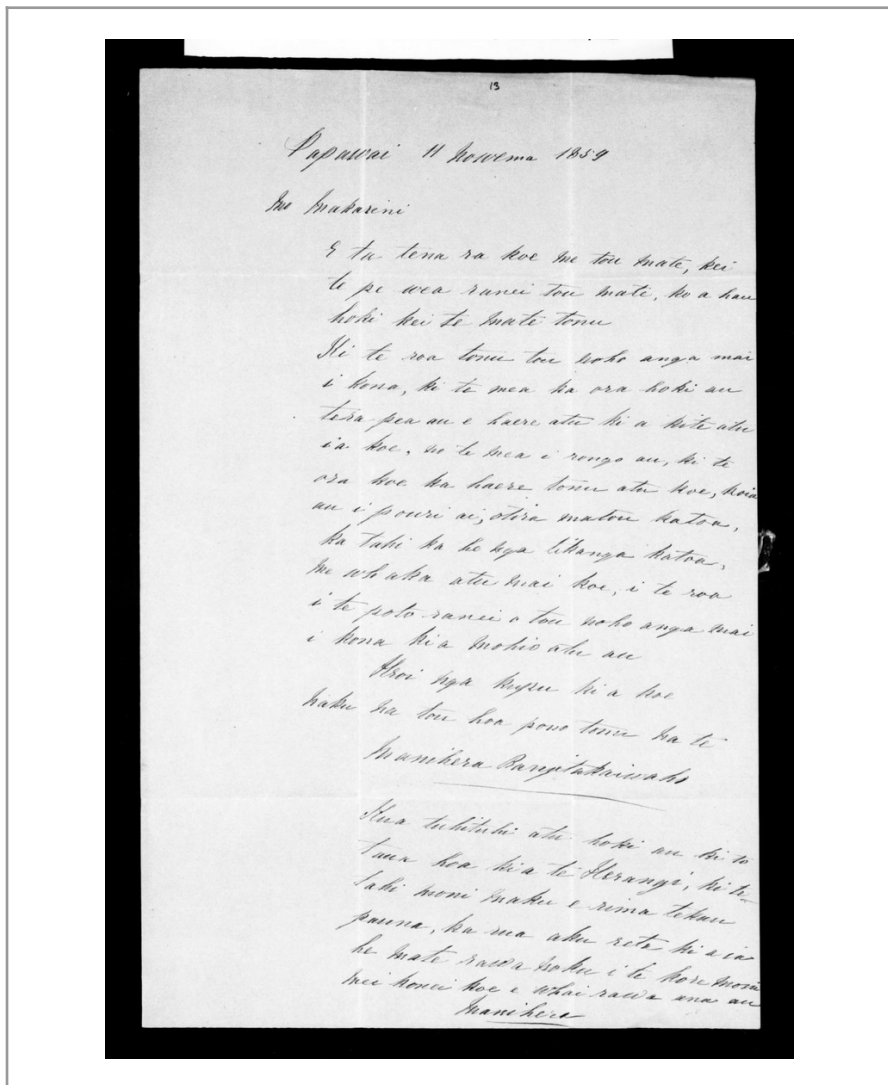 13
Papawai 11 Nowema 1859
Mo Makarini
E ta tena ra koe me tou mate, kei
te pe wea ranei tou mate, ko a hau
hoki kei te mate tonu
Ki te roa tonu tou noho anga mai
i kona, ki te mea ka ora hoki au
tera pea au e haere atu ki a kite atu
ia koe, no te mea i rongo au, ki te
ora koe ka haere tonu atu koe, koia
au i pouri ai, otira matou katoa,
ka tahi ka he nga tikanga katoa,
me whaka atu mai koe, i te roa
i te poto ranei o tou noho anga mai
i kona kia mohio atu au
Heoi nga kupu ki a koe
Naku na tou hoa pono tonu na te
Manihera Rangitakaiwaho
Kua tuhituhi atu hoki au ki to
taua hoa kia te Herangi, ki te
tahi moni maku e rima tekau
pauna, ka rua aku reta ki a ia
he mate rawa noku i te kore moni
mei konei koe e whai rawa ana au
Manihera